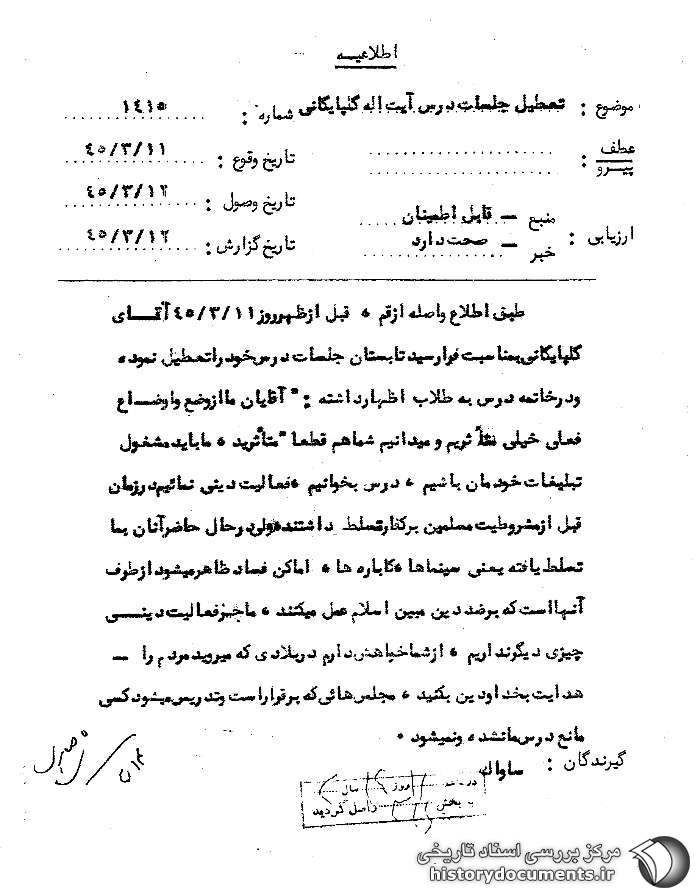 اطلاعیــه
موضوع : تعطیل جلسات درس آیت اله گلپایگانی شماره : ۱۴۱۵
عطف
پیرو :
تاریخ وقوع : ۴۵/۳/۱۱
تاریخ وصول : ۴۵/۳/۱۲
ارزیابی : منبع ــ قابل اطمینان
خبر ــ صحت دارد
تاریخ گزارش : ۴۵/۳/۱۲
طبق اطلاع واصله ازقم ، قبل ازظهرروز ۴۵/۳/۱۱ آقــای
گلپایگانی بمناسبت فرارسید تابستان جلسات درس خود راتعطیل نموده
ودرخاتمه درس به طلاب اظهارداشته : " آقایان ماازوضع واوضــاع
فعلی خیلی متأثریم و میدانیم شماهم قطعا" متأثرید ، مابایدمشغول
تبلیغات خودمان باشیم ، درس بخوانیم ،فعالیت دینی نمائیم درزمان
قبل ازمشروطیت مسلمین برکفارتسلط داشتند ولی درحال حاضرآنان بما
تسلط یافته یعنی سینماها ،کاباره ها ، اماکن فساد ظاهرمیشود ازطرف
آنهااست که برضد دین مبین اسلام عمل میکنند ، ماجزفعالیت دینــی
چیزی دیگرنداریم ، ازشماخواهش دارم دربلادی که میروید مردم را ــ
هدایت بخداودین بکنید ، مجلس هائی که برقراراست وتدریس میشود کسی
مانع درس مانشده ونمیشود .
گیرندگان : ساواک
روز سال
به بخش واصل گردید
مرکز بررسی اسناد تاریخی
historydocuments.ir